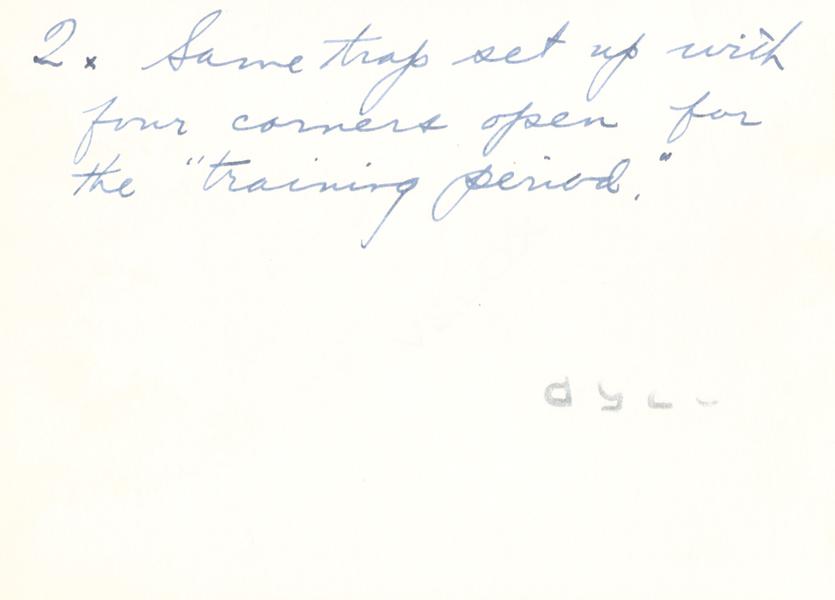 2. Same trap set up with
four corners open for
the "training period."